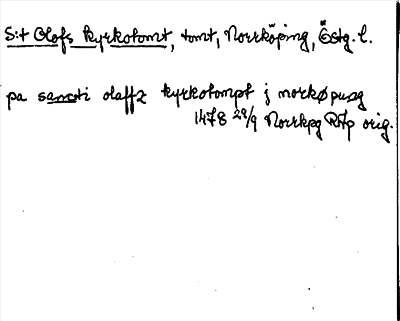 S:t Olofs kyrkotomt, tomt, Norrköping, Östg. l.
pa sancti olaffz kyrkotompt j norkøpung
1478 29/9 Norrkpg RAp orig.